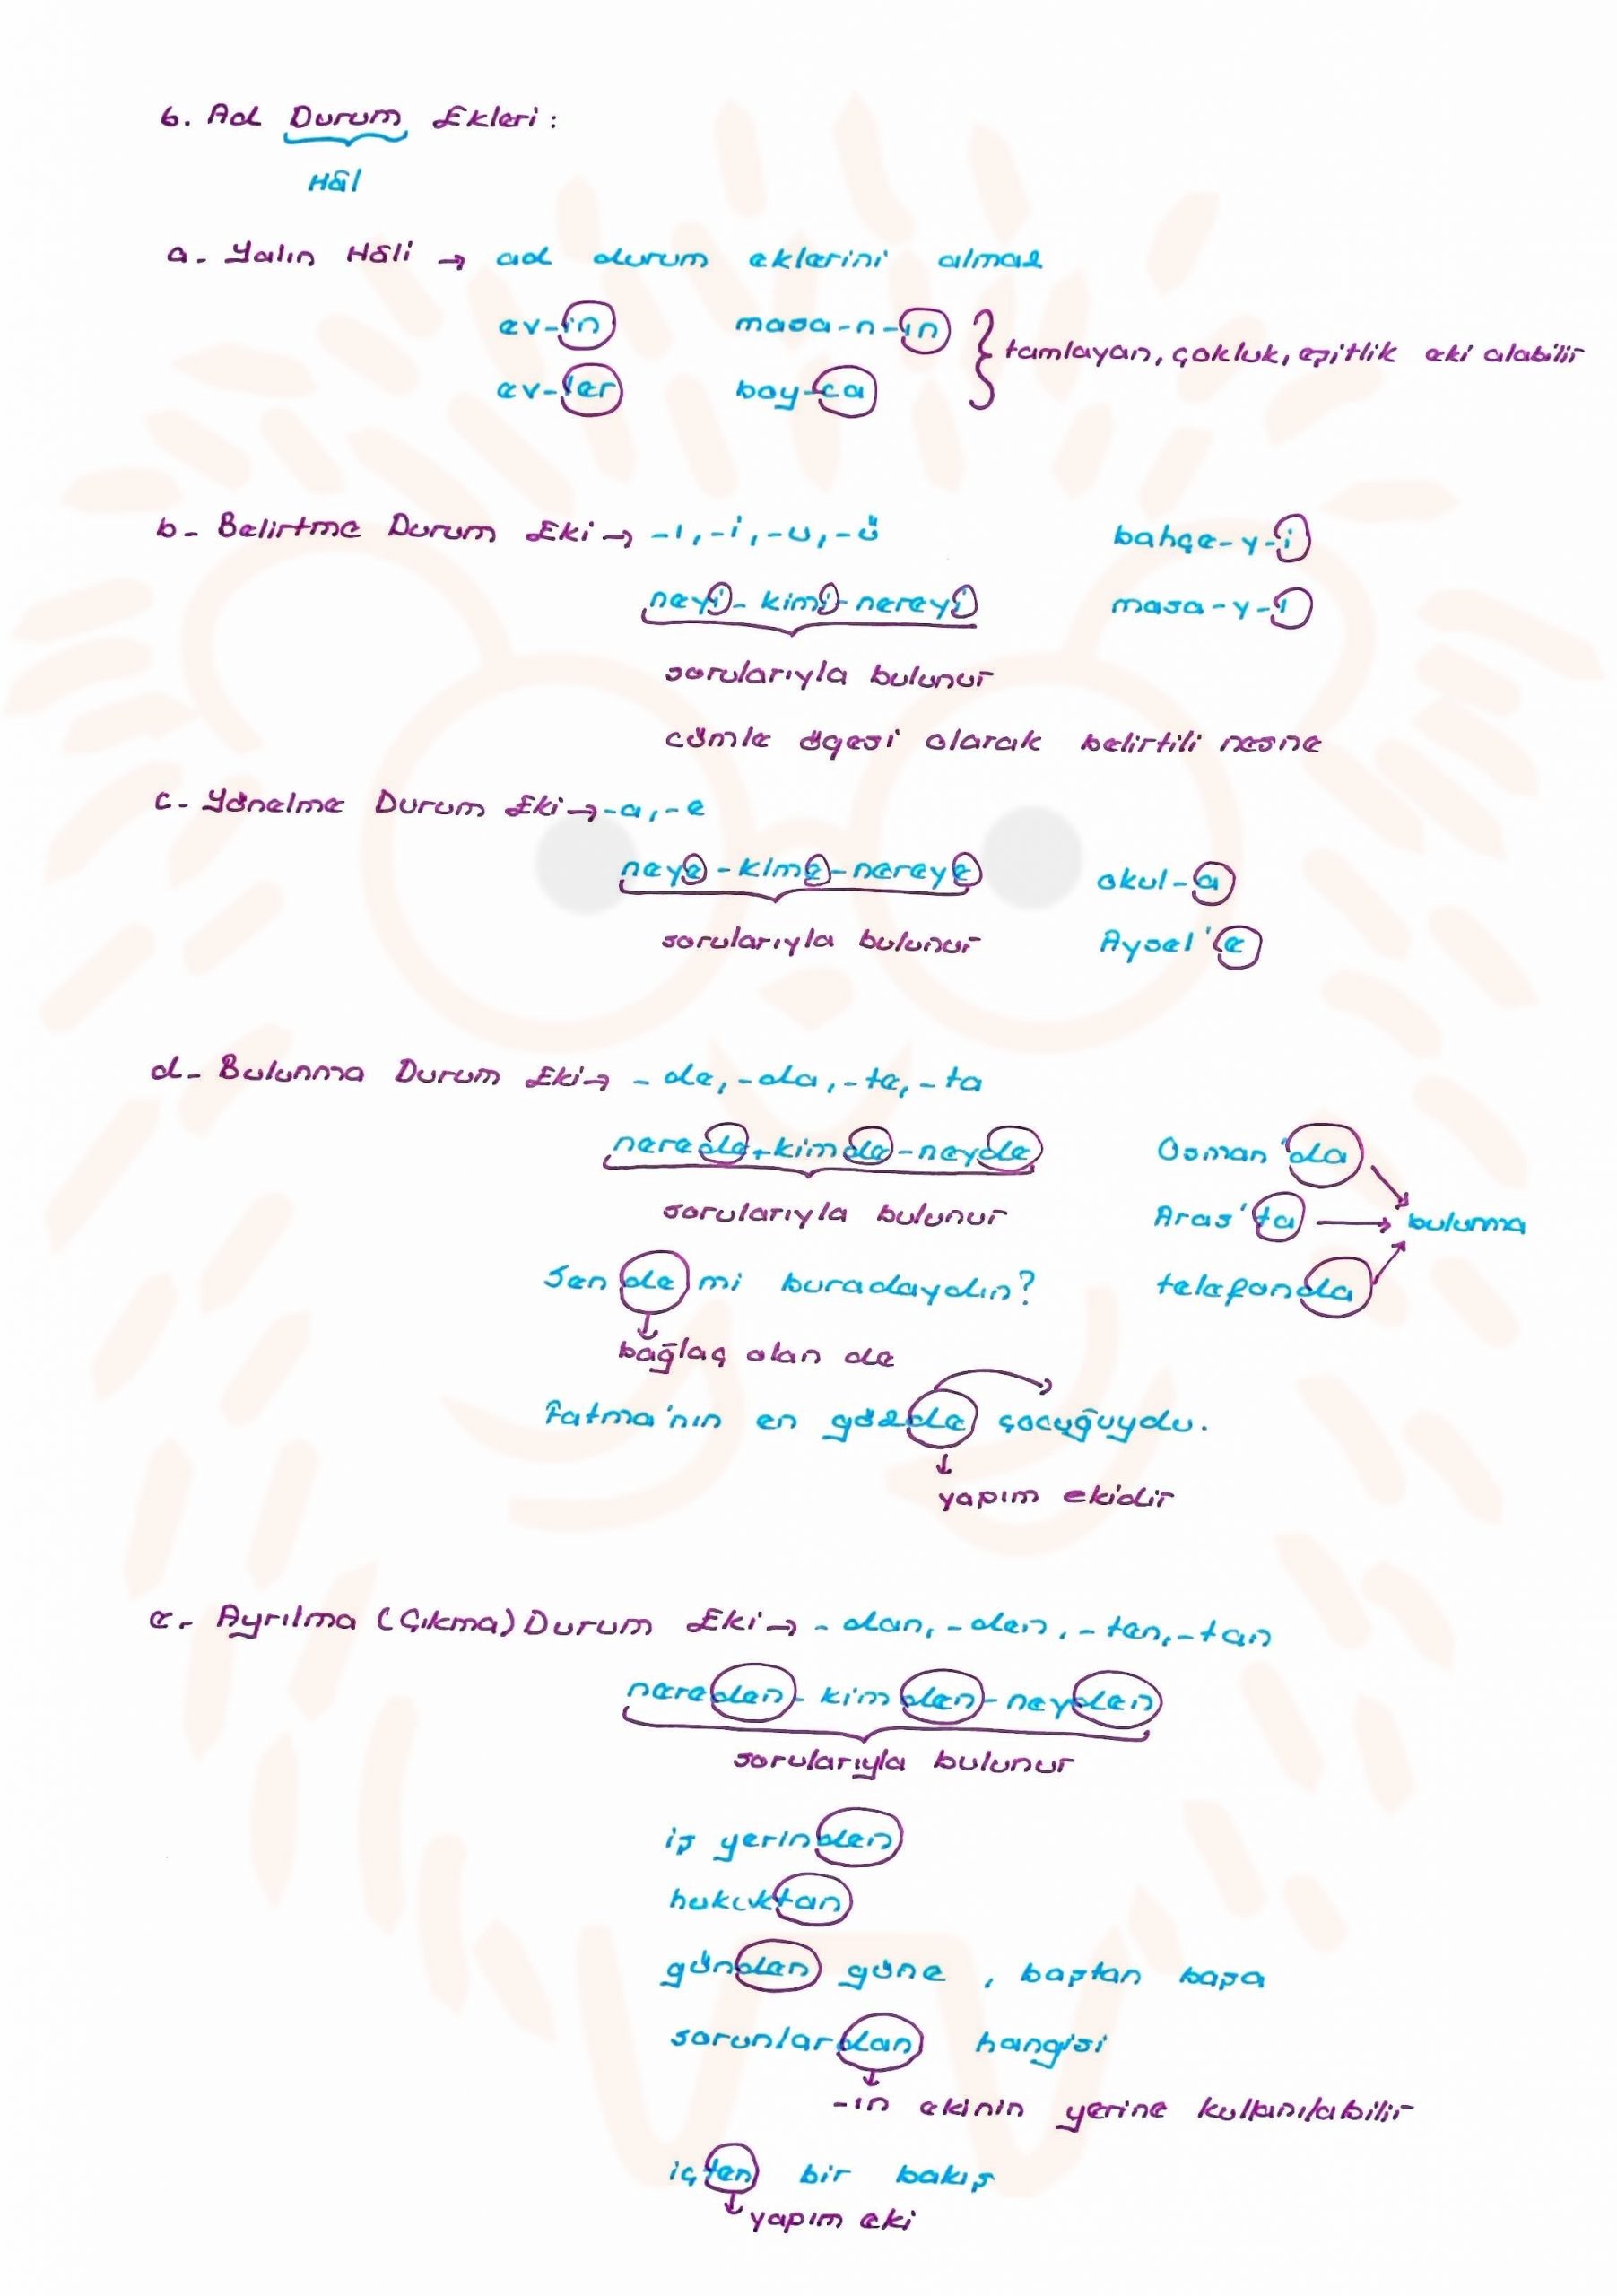 6. Ad Durum Ekleri:
Hâl
a- Yalın Hâli → ad durum eklerini almaz
ev-in masa-n-ın
ev-ler boy-ca
tamlayan, çokluk, eşitlik eki alabilir
b- Belirtme Durum Eki → -ı, -i, -u, -ü bahçe-y-i
neyi - kimi - nereyi masa-y-ı
sorularıyla bulunur
cümle ögesi olarak belirtili nesne
c- Yönelme Durum Eki → -a, -e
neye - kime - nereye okul-a
sorularıyla bulunur Aysel'e
d- Bulunma Durum Eki → -de, -da, -te, -ta
nerede - kimde - neyde Osman'da
sorularıyla bulunur Aras'ta → bulunma
Sen de mi buradaydın? telefonda
bağlaç olan de
Fatma'nın en gözde çocuğuydu.
yapım ekidir
e- Ayrılma (Çıkma) Durum Eki → -dan, -den, -ten, -tan
nereden - kimden - neyden
sorularıyla bulunur
iş yerinden
hukuktan
günden güne, baştan başa
sorunlardan hangisi
-ın ekinin yerine kullanılabilir
içten bir bakış
yapım eki